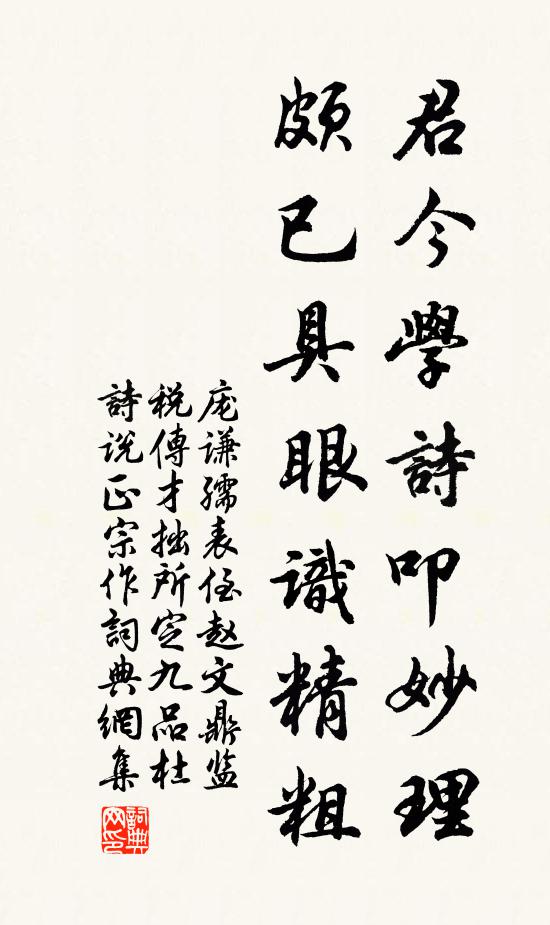 君今學詩叩妙理
頗已具眼識精粗
庞謙孺表侄赵文鼎监
税傳才拙所定九品杜
詩说正宗作詞典網集
詞典
网印